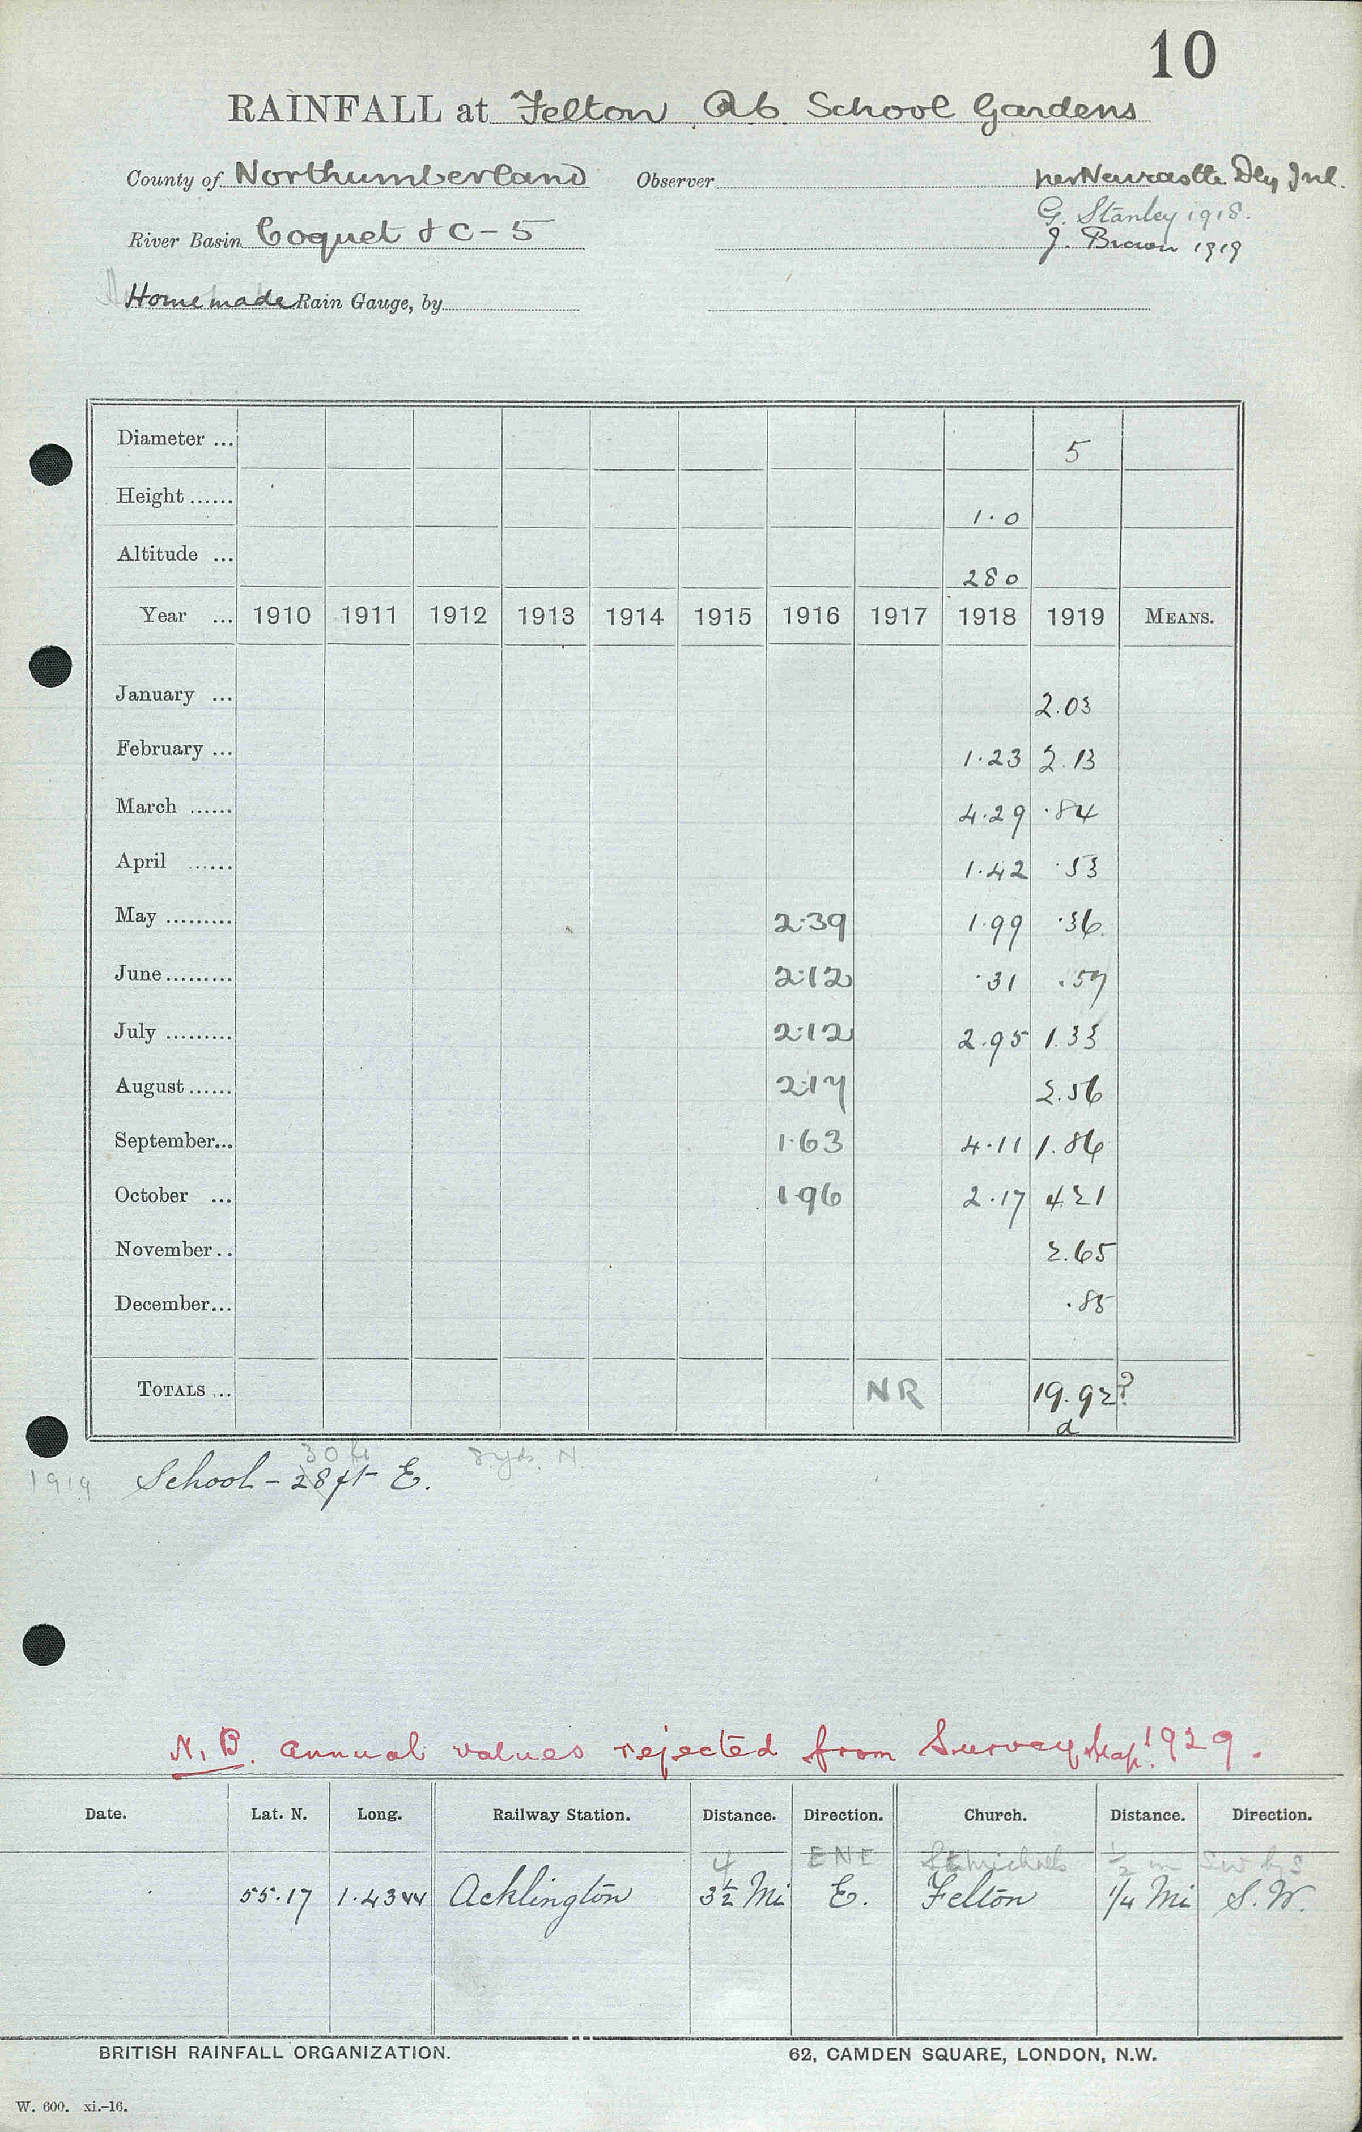 10
RAINFALL at Felton Ab School Gardens
County of Northumberland Observer per Newcastle Dly Jnl.
G. Stanley 1918.
River Basin Coquet &C-5 J. Brown 1919
Home made Rain Gauge, by
Diameter ... 5
Height ...... 1.0
Altitude ... 280
Year ... 1910 1911 1912 1913 1914 1915 1916 1917 1918 1919 MEANS.
January ... 2.03
February ... 1.23 2.13
March ...... 4.29 .84
April ...... 1.42 .53
May ......... 2.39 1.99 .36
June ......... 2.12 .31 .57
July ......... 2.12 2.95 1.33
August ...... 2.17 2.56
September... 1.63 4.11 1.86
October ... 1.96 2.17 4.21
November .. 2.65
December... .85
TOTALS ... NR 19.92?
a
30 ft 2yds. N.
1919 School - 28 ft E.
N.B. annual values rejected from Survey Map. 1929.
Date. Lat. N. Long. Railway Station. Distance. Direction. Church. Distance. Direction.
4 ENE St Michaels 1/2 m SW by S
55.17 1.43 W Acklington 3½ Mi E. Felton 1/4 Mi S.W.
BRITISH RAINFALL ORGANIZATION. 62, CAMDEN SQUARE, LONDON, N.W.
W. 600. xi.-16.